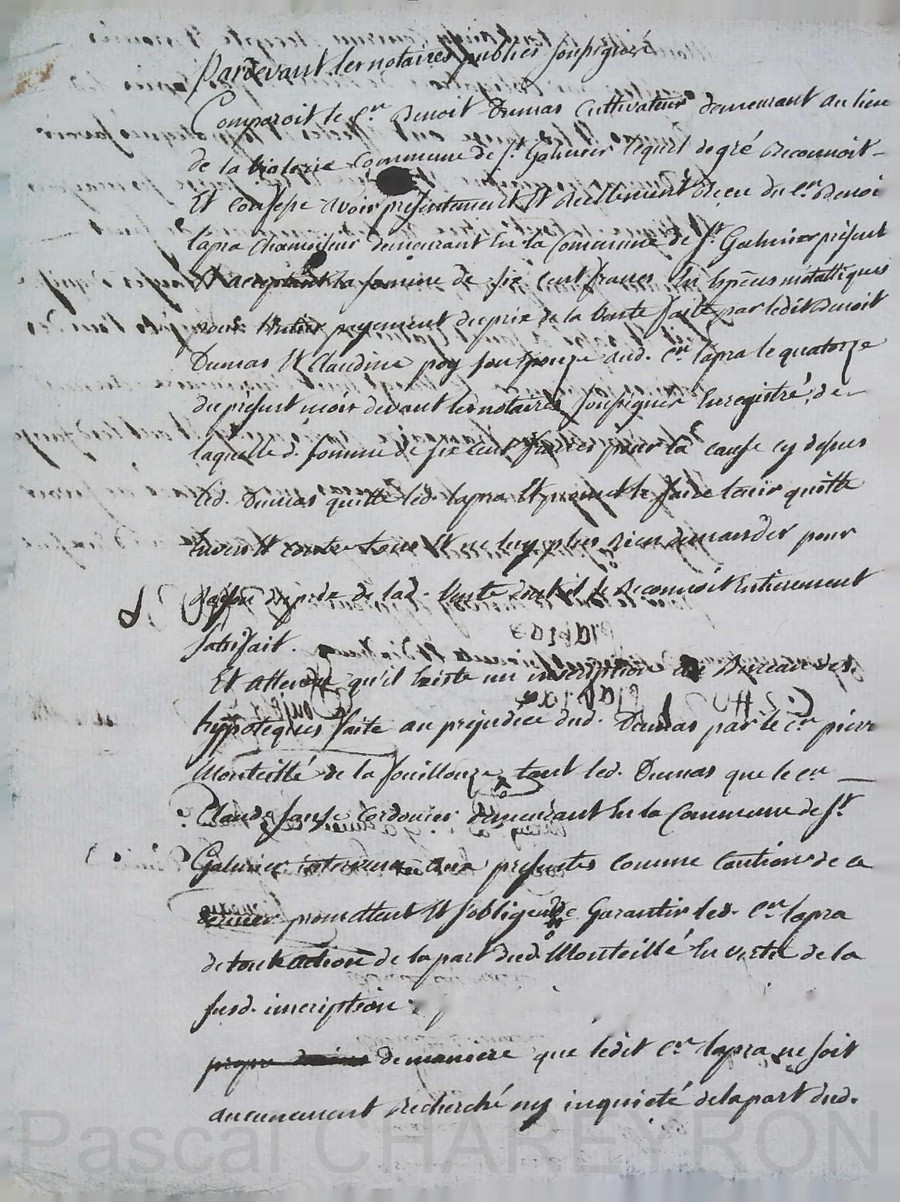 Pardevant les notaires publics soussignés
Comparoit le C.en Benoit Dumas Cultivateur demeurant au lieu
de la Commune de S.t Galmier lequel de gré Reconnoit
Et confesse avoir présentement Et Réellement Reçu du C.en Benoi
lapra Chamoiseur demeurant En la Commune de S.t Galmier présent
Et acceptant la somme de six cent francs En Espèces métalliques
pour Entier payement du prix de la Vente faitte par ledit Benoit
Dumas Et Claudine poy son Epouze aud. C.en lapra le quatorze
du présent mois devant les notaires soussignés Enregistré, de
laquelle d. somme de six cent francs pour la cause cy dessus
led. Dumas quitte led. lapra Et promet le faire tenir quitte
Envers Et contre tous Et ne luy plus rien demander pour
Raison du prix de lad. Vente dont il se Reconnoit Entierement
satisfait.
Et attendu qu'il Existe un inscription au Bureau des
hypoteques faite au prejudice dud. Dumas par le C.en pierre
Monteillé de la fouillouze, tant led. Dumas que le C.en
Claude Cordonier demeurant En la Commune de S.t
Galmier aux presentes comme Caution de ce
dernier promettent Et s'obligent de Garantir led. C.en lapra
de toute action de la part dud. Monteillé En vertu de la
susd. inscription
de maniere que ledit C.en lapra ne soit
aucunement Recherché ny inquieté de la part dud.
Pascal CHAREYRON